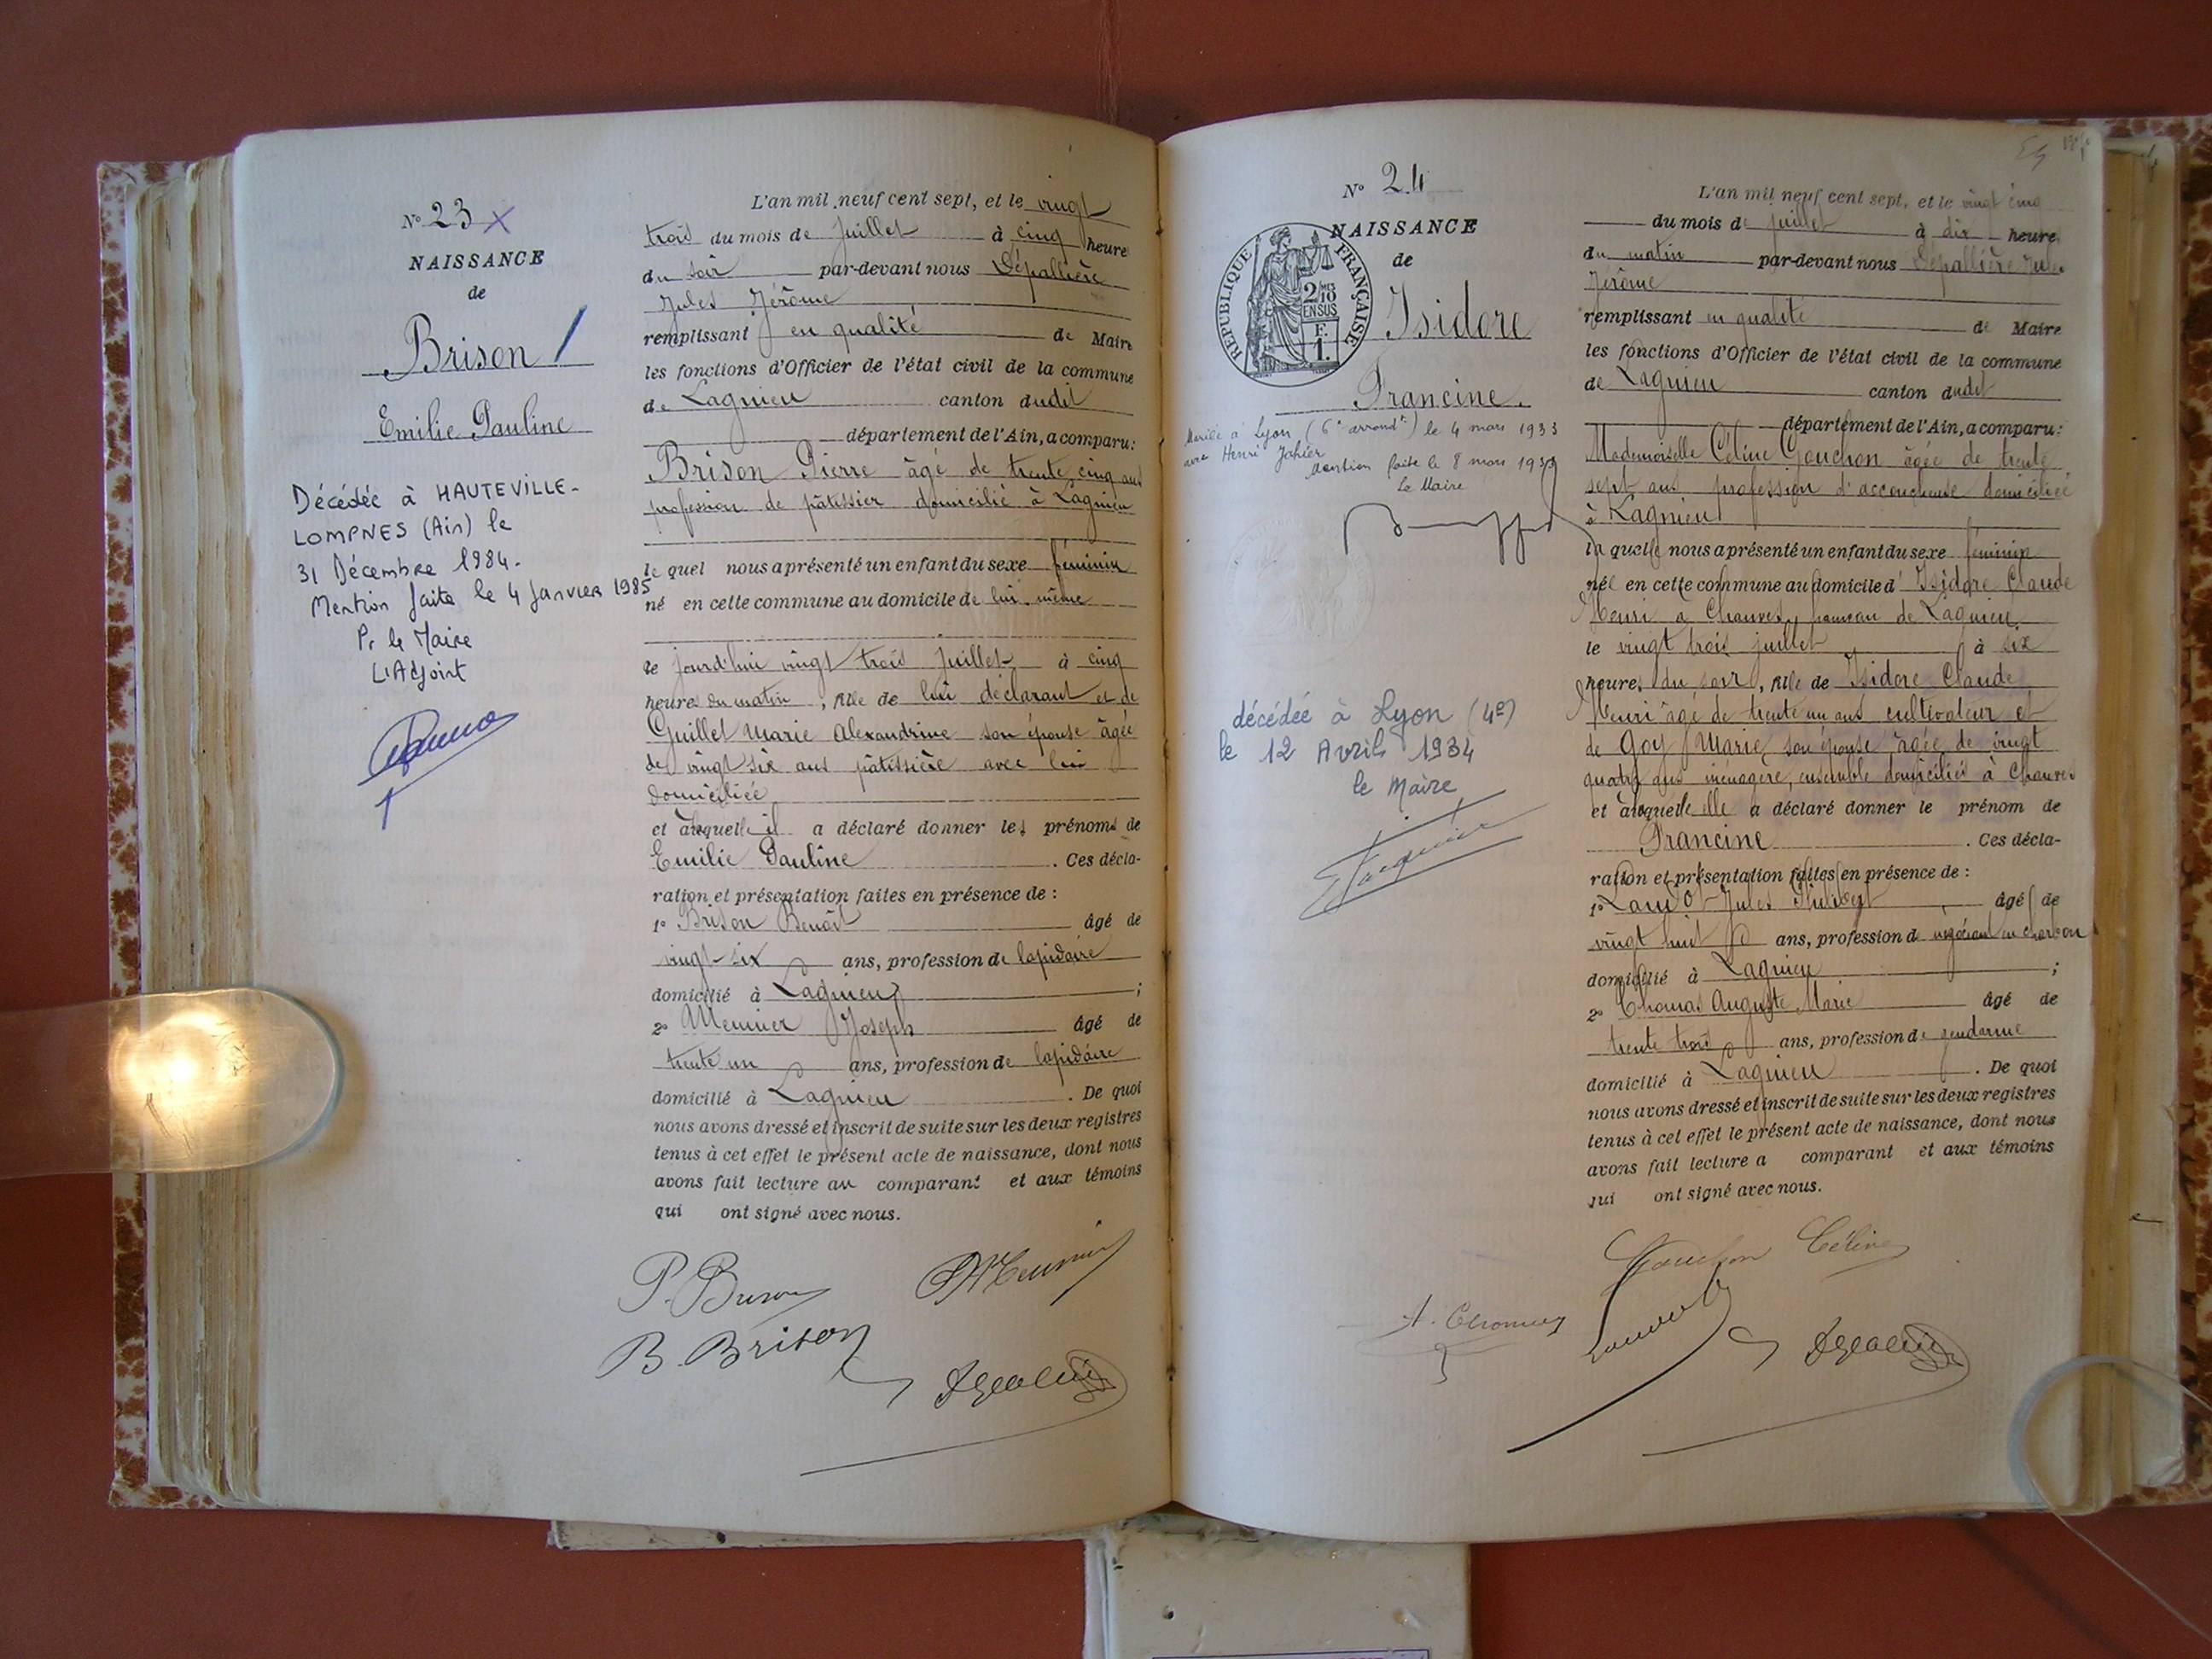 N° 23 X
NAISSANCE
de
Brison /
Emilie Pauline
Décédée à HAUTEVILLE-
LOMPNES (Ain) le
31 Décembre 1984.
Mention faite le 4 Janvier 1985
Pr le Maire
L'Adjoint
L'an mil neuf cent sept, et le vingt
trois du mois de Juillet à cinq heure
du soir par-devant nous Dépallière
Jules Jérôme
remplissant en qualité de Maire
les fonctions d'Officier de l'état civil de la commune
de Lagnieu canton dudit
département de l'Ain, a comparu:
Brison Pierre âgé de trente cinq ans
profession de pâtissier domicilié à Lagnieu
le quel nous a présenté un enfant du sexe féminin
né en cette commune au domicile de lui même
le jourd'hui vingt trois Juillet à cinq
heures du matin, fille de lui déclarant et de
Guillet Marie Alexandrine son épouse âgée
de vingt six ans pâtissière avec lui
domiciliée
et auquelle il a déclaré donner les prénoms de
Emilie Pauline. Ces décla-
ration et présentation faites en présence de :
1° Brison Benoît âgé de
vingt-six ans, profession de lapidaire
domicilié à Lagnieu ;
2° Meunier Joseph âgé de
trente un ans, profession de lapidaire
domicilié à Lagnieu. De quoi
nous avons dressé et inscrit de suite sur les deux registres
tenus à cet effet le présent acte de naissance, dont nous
avons fait lecture au comparant et aux témoins
qui ont signé avec nous.
P. Brison
B. Brison
N° 24
NAISSANCE
de
RÉPUBLIQUE FRANÇAISE
2/10
EN SUS
F.
1.
Isidore
Francine.
Mariée à Lyon (6e arrondt) le 4 mars 1933
avec Henri Jahier
Mention faite le 8 mars 1933
Le Maire
décédée à Lyon (4e)
le 12 Avril 1934
le Maire
L'an mil neuf cent sept, et le vingt cinq
du mois de juillet à dix heure
du matin par-devant nous Dépallière Jules
Jérôme
remplissant en qualité de Maire
les fonctions d'Officier de l'état civil de la commune
de Lagnieu canton dudit
département de l'Ain, a comparu:
Mademoiselle Céline Gouchon âgée de trente
sept ans profession d'accoucheuse domiciliée
à Lagnieu
la quelle nous a présenté un enfant du sexe féminin
née en cette commune au domicile d' Isidore Claude
Henri à Chauves hameau de Lagnieu
le vingt trois juillet à six
heures du soir, fille de Isidore Claude
Henri âgé de trente un ans cultivateur et
de Goy Marie son épouse âgée de vingt
quatre ans ménagère, ensemble domiciliés à Chauves
et auquelle elle a déclaré donner le prénom de
Francine. Ces décla-
ration et présentation faites en présence de :
1° Jules âgé de
vingt huit ans, profession de négociant en charbon
domicilié à Lagnieu ;
2° Thomas Auguste Marie âgé de
trente trois ans, profession de gendarme
domicilié à Lagnieu. De quoi
nous avons dressé et inscrit de suite sur les deux registres
tenus à cet effet le présent acte de naissance, dont nous
avons fait lecture a comparant et aux témoins
qui ont signé avec nous.
Gouchon Céline